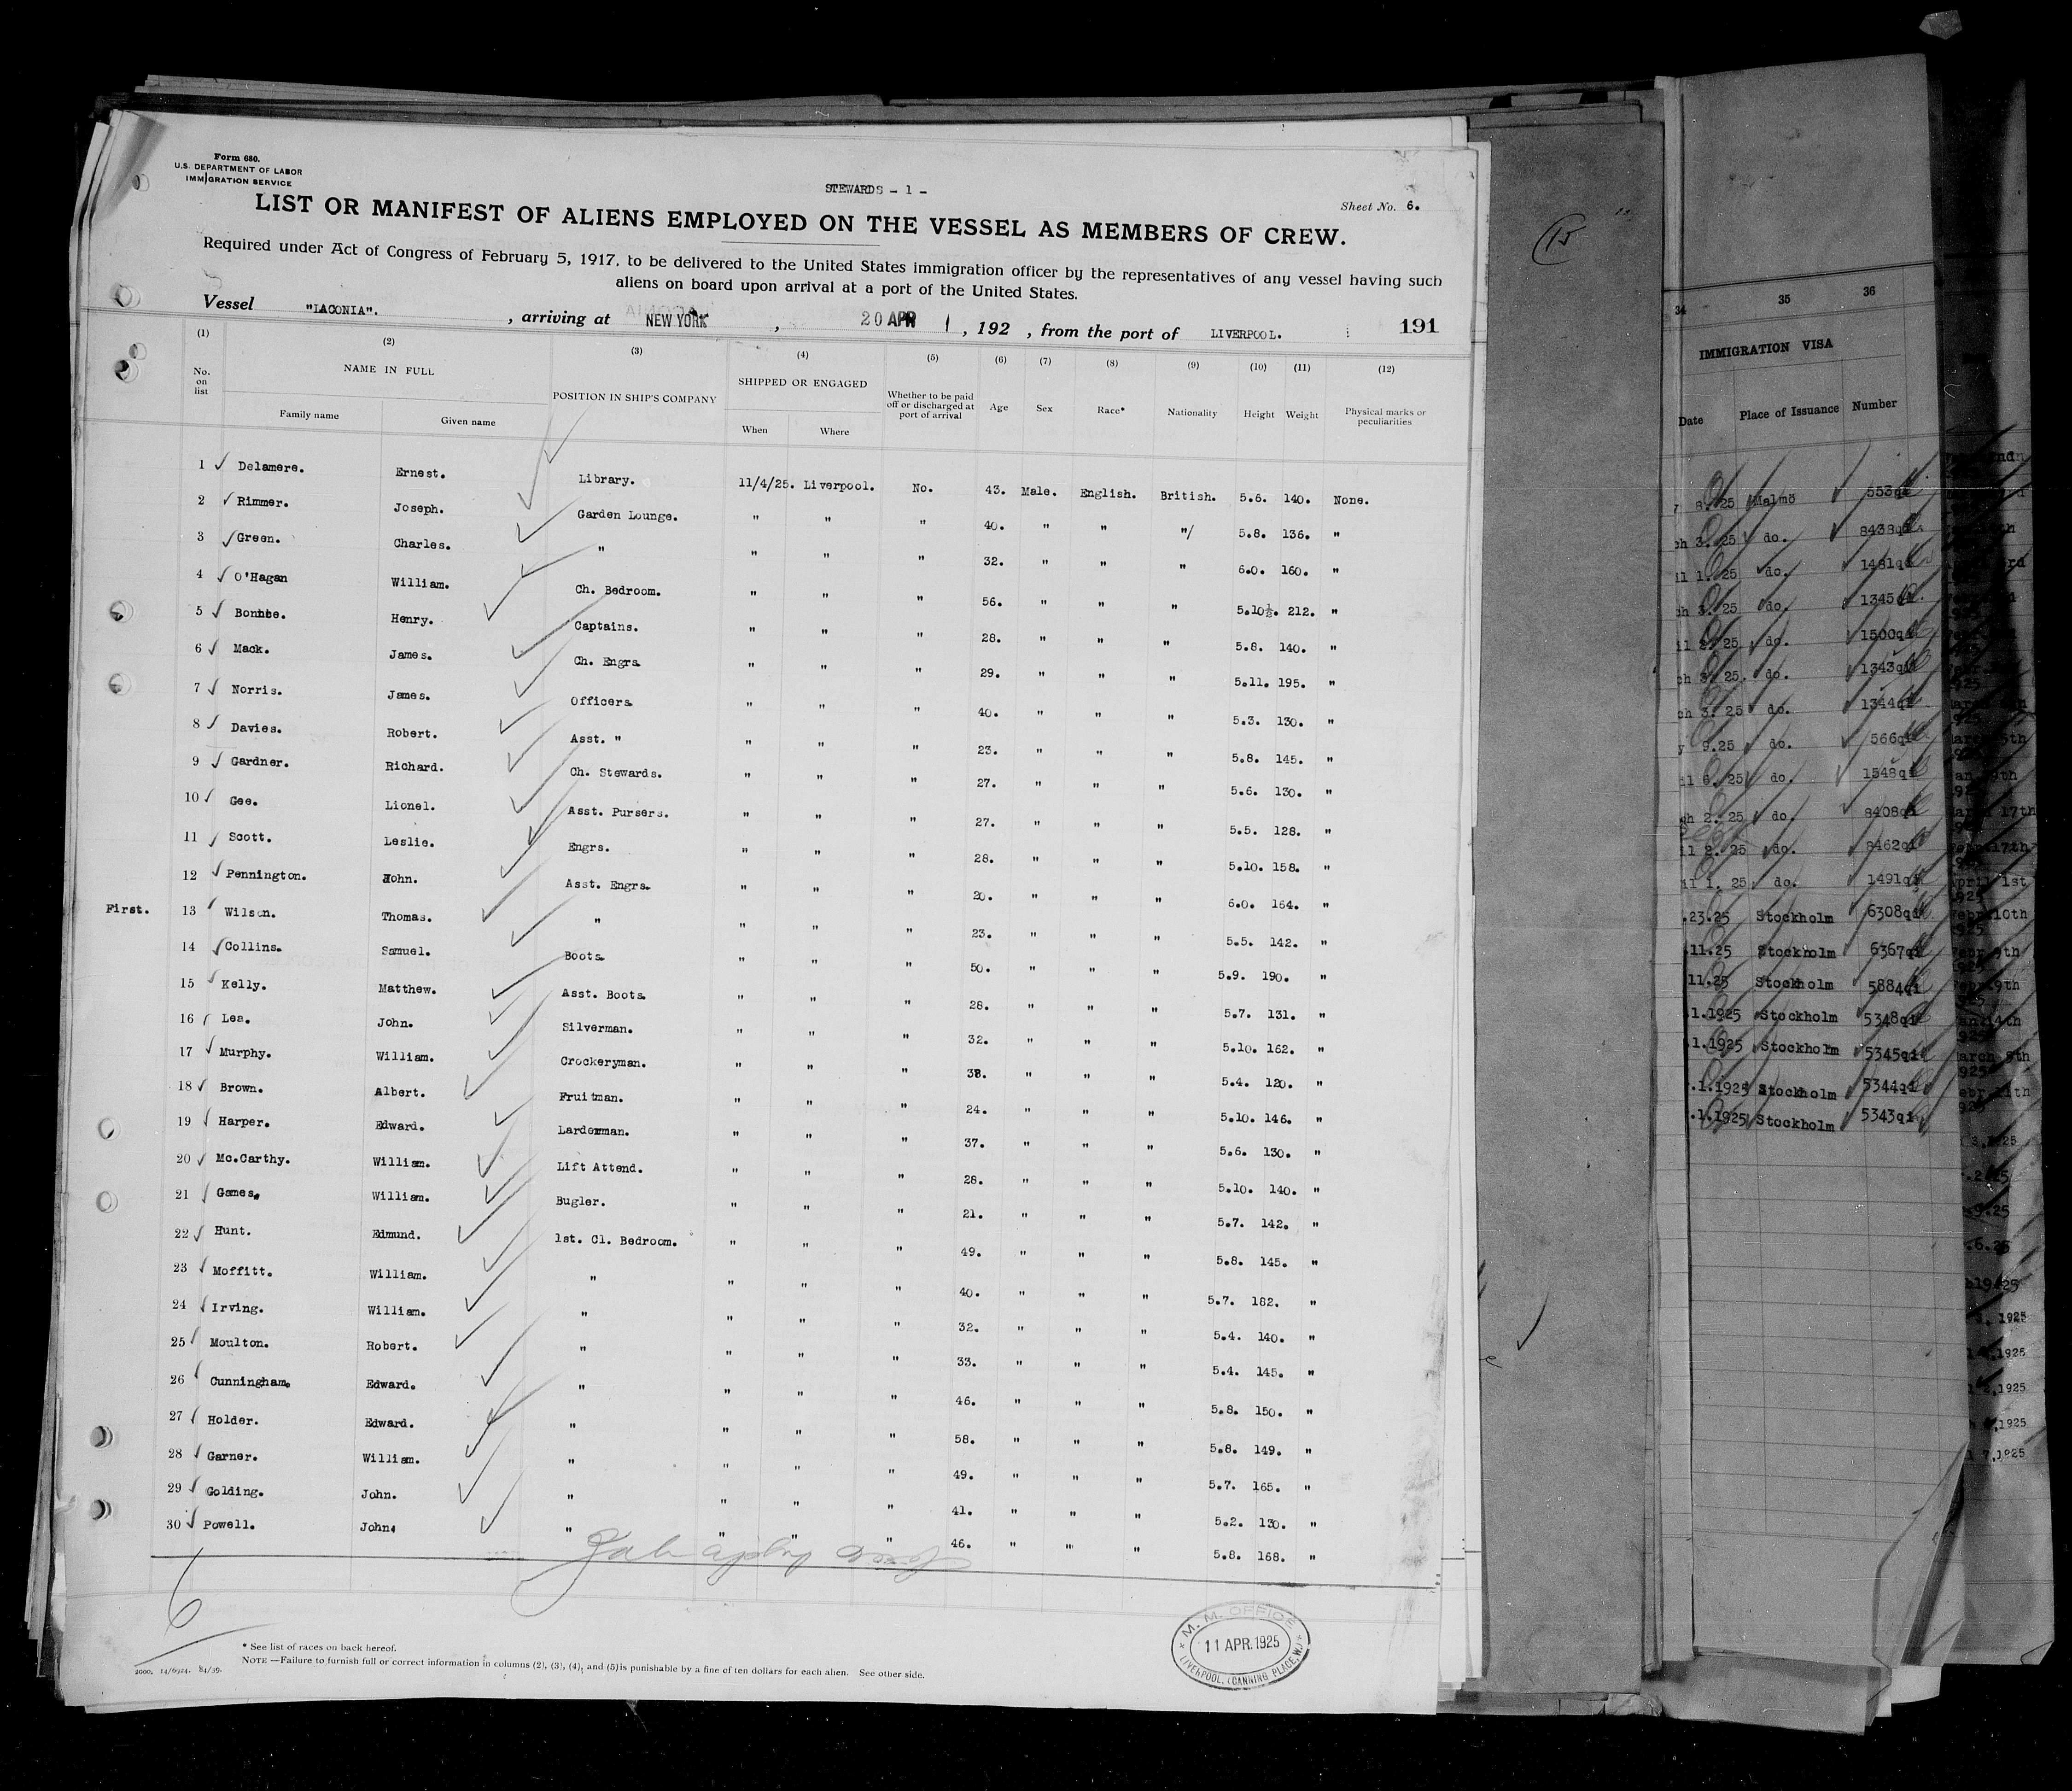 Form 680.
U.S. DEPARTMENT OF LABOR
IMMIGRATION SERVICE
STEWARDS - 1 -
Sheet No. 6.
LIST OR MANIFEST OF ALIENS EMPLOYED ON THE VESSEL AS MEMBERS OF CREW.
Required under Act of Congress of February 5, 1917, to be delivered to the United States immigration officer by the representatives of any vessel having such
aliens on board upon arrival at a port of the United States.
Vessel "LACONIA". , arriving at NEW YORK , 20 APR , 192 , from the port of LIVERPOOL. 191
(1) (2) (3) (4) (5) (6) (7) (8) (9) (10) (11) (12)
No. on list NAME IN FULL Family name Given name POSITION IN SHIP'S COMPANY SHIPPED OR ENGAGED When Where Whether to be paid off or discharged at port of arrival Age Sex Race* Nationality Height Weight Physical marks or peculiarities
1 Delamere. Ernest. Library. 11/4/25. Liverpool. No. 43. Male. English. British. 5.6. 140. None.
2 Rimmer. Joseph. Garden Lounge. " " " 40. " " "/ 5.8. 136. "
3 Green. Charles. " " " " 32. " " " 6.0. 160. "
4 O'Hagan William. Ch. Bedroom. " " " 56. " " " 5.10½. 212. "
5 Henry. Captains. " " " 28. " " " 5.8. 140. "
6 Mack. James. Ch. Engrs. " " " 29. " " " 5.11. 195. "
7 Norris. James. Officers. " " " 40. " " " 5.3. 130. "
8 Davies. Robert. Asst. " " " " 23. " " " 5.8. 145. "
9 Gardner. Richard. Ch. Stewards. " " " 27. " " " 5.6. 130. "
10 Gee. Lionel. Asst. Pursers. " " " 27. " " " 5.5. 128. "
11 Scott. Leslie. Engrs. " " " 28. " " " 5.10. 158. "
12 Pennington. John. Asst. Engrs. " " " 20. " " " 6.0. 164. "
First. 13 Wilson. Thomas. " " " " 23. " " " 5.5. 142. "
14 Collins. Samuel. Boots. " " " 50. " " " 5.9. 190. "
15 Kelly. Matthew. Asst. Boots. " " " 28. " " " 5.7. 131. "
16 Lea. John. Silverman. " " " 32. " " " 5.10. 162. "
17 Murphy. William. Crockeryman. " " " 38. " " " 5.4. 120. "
18 Brown. Albert. Fruitman. " " " 24. " " " 5.10. 146. "
19 Harper. Edward. Larderman. " " " 37. " " " 5.6. 130. "
20 Mc.Carthy. William. Lift Attend. " " " 28. " " " 5.10. 140. "
21 Games. William. Bugler. " " " 21. " " " 5.7. 142. "
22 Hunt. Edmund. 1st. Cl. Bedroom. " " " 49. " " " 5.8. 145. "
23 Moffitt. William. " " " " 40. " " " 5.7. 182. "
24 Irving. William. " " " " 32. " " " 5.4. 140. "
25 Moulton. Robert. " " " " 33. " " " 5.4. 145. "
26 Cunningham. Edward. " " " " 46. " " " 5.8. 150. "
27 Holder. Edward. " " " " 58. " " " 5.8. 149. "
28 Garner. William. " " " " 49. " " " 5.7. 165. "
29 Golding. John. " " " " 41. " " " 5.2. 130. "
30 Powell. John. " " " " 46. " " " 5.8. 168. "
6
* See list of races on back hereof.
NOTE —Failure to furnish full or correct information in columns (2), (3), (4), and (5) is punishable by a fine of ten dollars for each alien. See other side.
2000. 14/6924. 84/39.
M. M. OFFICE
11 APR. 1925
LIVERPOOL, (CANNING PLACE, W.)
15
34 35 36
IMMIGRATION VISA
Date Place of Issuance Number
8. 25 Malmö 553qi
ch 3. 25 do. 8438qi
il 1. 25 do. 1481qi
ch 3. 25 do. 1345qi
il 2. 25 do. 1500qi
ch 3. 25. do. 1343qi
ch 3. 25 do. 1344qi
y 9.25 do. 566qi
il 6. 25 do. 1548qi
ch 2. 25 do. 8408qi
il 2. 25 do. 8462qi
il 1. 25 do. 1491qi
.23.25 Stockholm 6308qi
.11.25 Stockholm 6367qi
11.25 Stockholm 5884qi
.1.1925 Stockholm 5348qi
1.1925 Stockholm 5345qi
.1.1925 Stockholm 5344qi
.1.1925 Stockholm 5343qi